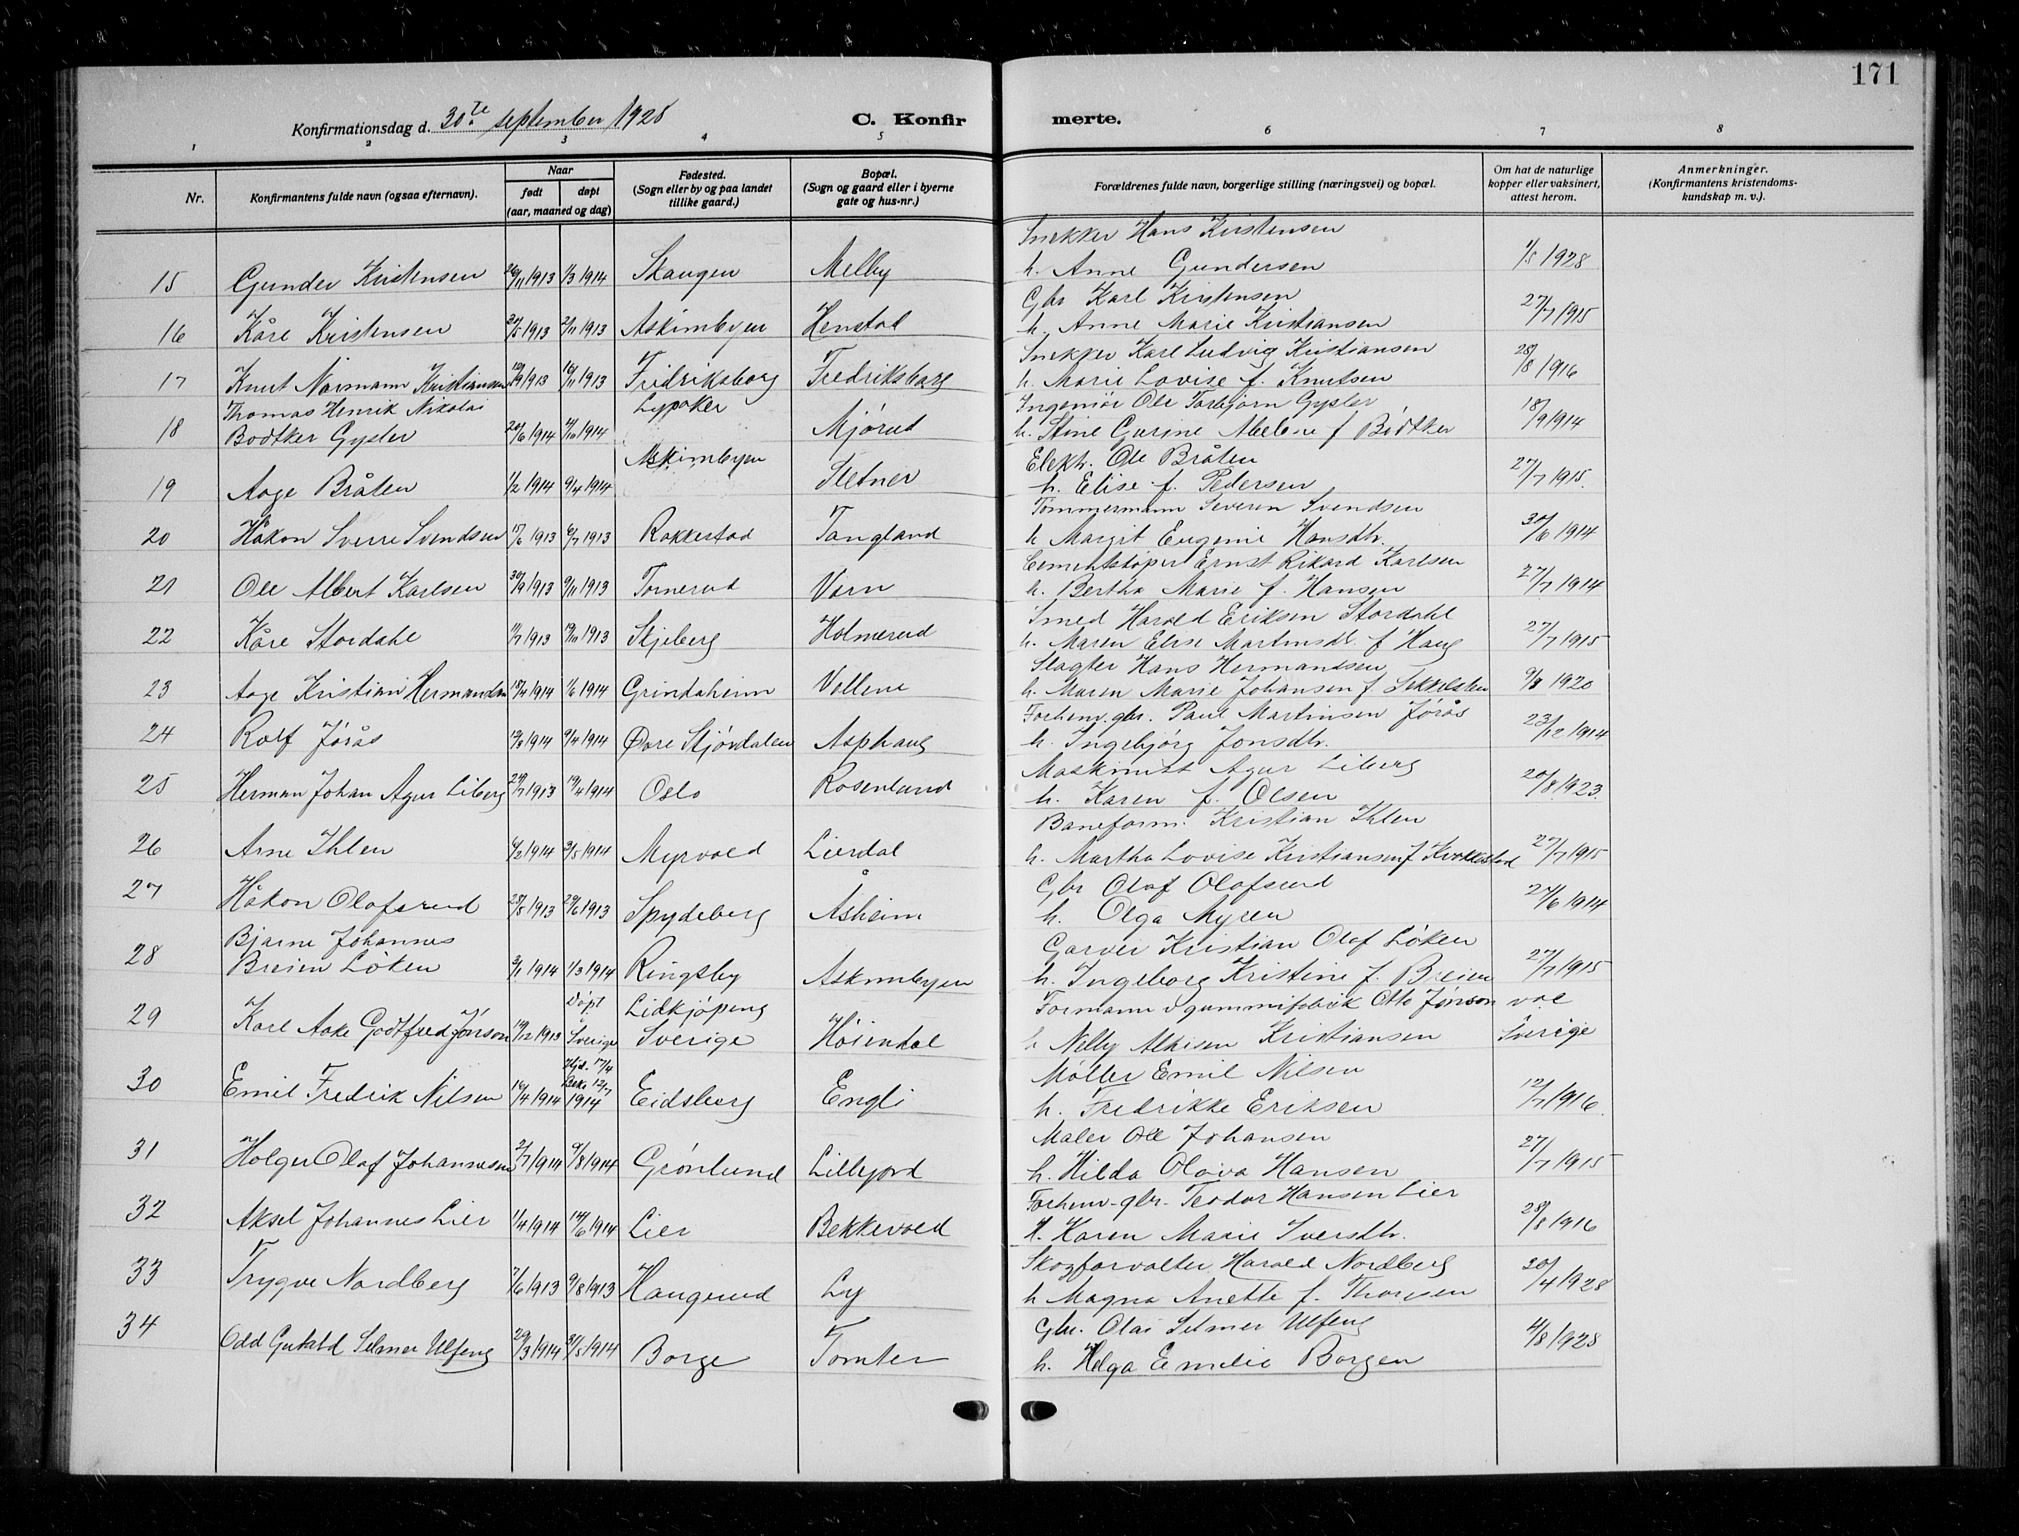 171
Konfirmationsdag d. 30te september 1928
C. Konfirmerte.
1 2 3 4 5 6 7 8
Nr. Konfirmantens fulde navn (ogsaa efternavn). Naar født døpt (aar, maaned og dag) Fødested. (Sogn eller by og paa landet tillike gaard.) Bopæl. (Sogn og gaard eller i byerne gate og hus-nr.) Forældrenes fulde navn, borgerlige stilling (næringsvei) og bopæl. Om hat de naturlige kopper eller vaksinert, attest herom. Anmerkninger. (Konfirmantens kristendomskundskap m. v.).
Snekker Hans Kristensen
15 Gunder Kristensen 26/11 1913 1/3 1914 Skaugen Melby h. Anne Gundersen 1/5 1928
Gbr Karl Kristensen
16 Kåre Kristensen 1913 2/11 1913 Askimbyen Henstal h. Anne Marie Kristiansen 27/7 1915
Snekker Karl Ludvig Kristiansen
17 Knut Normann Kristiansen 1913 16/11 1913 Fredriksborg Fredriksborg h. Marie Lovise f. Knutsen 28/8 1916
Thomas Henrik Nikolai Lypaker Ingeniør Ole Torbjørn Gysler
18 Bødtker Gysler 20/6 1914 1914 Mjørud h. Stine Gurine f Bødtker 18/9 1914
Askimbyen Elektr. Ole Bråten
19 Aage Bråten 1/2 1914 9/4 1914 Sletner h. Elise f. Pedersen 27/7 1915
Tømmermann Severin Svendsen
20 Håkon Sverre Svendsen 15/6 1913 6/7 1913 Rakkestad Tangland h Margit Eugenie Hansdtr. 30/6 1914
Cementstøper Ernst Rikard Karlsen
21 Ole Albert Karlsen 30/9 1913 9/11 1913 Tornerud Vorn h. Bertha Marie f. Hansen 27/7 1914
Smed Harald Eriksen Stordahl
22 Kåre Stordahl 11/7 1913 19/10 1913 Skjeberg Holmerud h. Maren Elise Martinsdtr f Haug 27/7 1915
Slagter Hans Hermandsen
23 Aage Kristian Hermandsen 15/4 1914 1/6 1914 Grindaheim Vellene h. Maren Marie Johansen f. Sekkelsten 9/8 1920
Forhenv. gbr. Paul Martinsen Jørås
24 Rolf Jørås 1914 9/4 1914 Øvre Stjørdalen Asphaug h. Ingebjørg Jonsdtr. 23/12 1914
Maskinist Agur Liberg
25 Herman Johan Agur Liberg 24/7 1913 19/4 1914 Oslo Rosenlund h. Karen f. Olsen 20/8 1923
Baneform. Kristian Ihlen
26 Arne Ihlen 6/2 1914 3/5 1914 Myrvold Lierdal h. Martha Lovise Kristiansen f 27/7 1915
Gbr Olaf Olafsrud
27 Håkon Olafsrud 25/5 1913 29/6 1913 Spydeberg Åsheim h. Olga Myren 24/6 1914
Bjarne Johannes Garver Kristian Olaf Løken
28 Breien Løken 3/1 1914 1/3 1914 Ringsby Askimbyen h. Ingeborg Kristine f. Breien 27/7 1915
Døpt Lidkjøping Formann v gummifabrik Otto Jønson vac
29 Karl Aake Godtfred Jönson 19/12 1913 i Sverige Sverige Høiendal h Nelly Kristiansen Sverige
Hjd. 17/4 Møller Emil Nilsen
30 Emil Fredrik Nilsen 16/4 1914 Bekr 12/7 1914 Eidsberg Engli h. Fredrikke Eriksen 12/7 1916
Maler Ole Johansen
31 Holger Olaf Johannesen 2/7 1914 9/8 1914 Grønlund Lillejord h. Hilda Olava Hansen 27/7 1915
Forhenv. gbr. Teodor Hansen Lier
32 Aksel Johannes Lier 1/4 1914 14/6 1914 Lier Bekkevold H. Karen Marie Iversdtr. 28/8 1916
Skogforvalter Harald Nordberg
33 Trygve Nordberg 7/6 1913 9/8 1913 Haugerud Ly h Magna Anette f. Thoresen 20/4 1928
Gbr. Olai Selmer Ulfeng
34 Odd Selmer Ulfeng 29/3 1914 31/5 1914 Borge Tomter h. Helga Emelie Borgen 4/8 1928